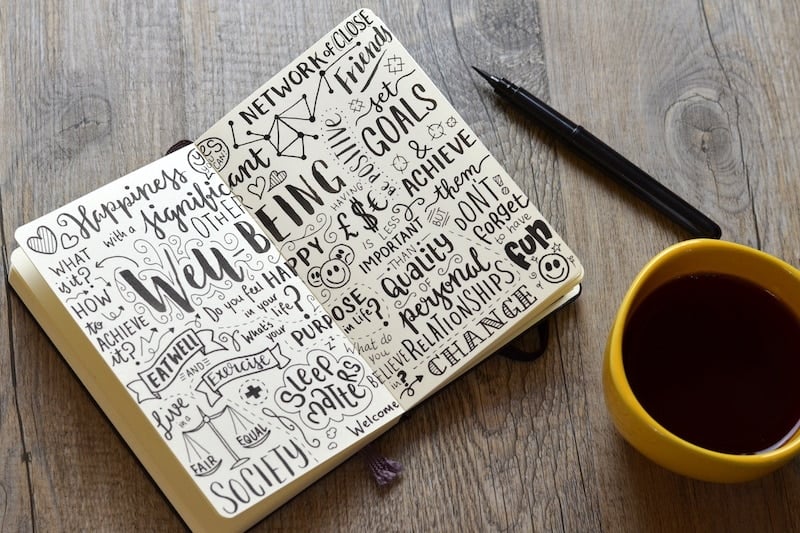 Happiness
with a significant
OTHER
yes
YOU CAN
WHAT
is it?
HOW
to
ACHIEVE
it?
Well BEING
Do you feel HAPPY
in your
life?
What's your PURPOSE
in Life?
EATWELL
AND
Exercise
Sleep
MATTERS
Live
in a
FAIR
EQUAL
SOCIETY
NETWORK of CLOSE
Friends
set
GOALS
&
ACHIEVE
them
Be
POSITIVE
HAVING
£$€
IS LESS
IMPORTANT
THAN
BUT
DON'T
forget
to have
fun
Quality
OF
personal
RELATIONSHIPS
What do
you
BELIEVE
in?
Welcome
CHANGE